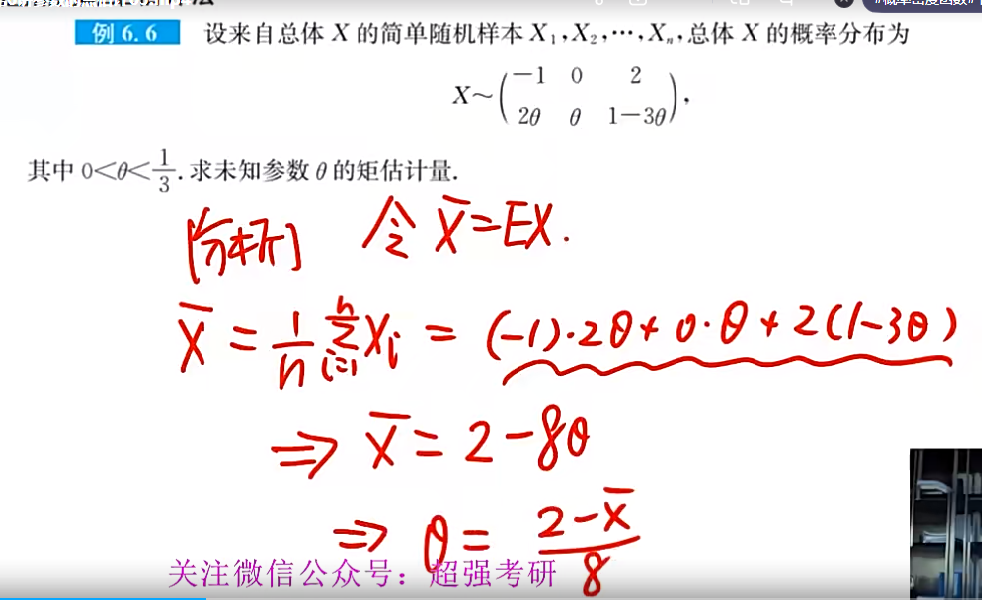 例 6.6 设来自总体 X 的简单随机样本 X₁,X₂,⋯,Xₙ,总体 X 的概率分布为
X~(−1 0 2
2θ θ 1−3θ),
其中 0<θ<1/3.求未知参数 θ 的矩估计量.
[分析] 令 X̄=EX.
X̄ = 1/n ∑ᵢ₌₁ⁿ Xᵢ = (-1)·2θ+0·θ+2(1-3θ)
⇒ X̄ = 2-8θ
⇒ θ = (2-X̄)/8
关注微信公众号：超强考研